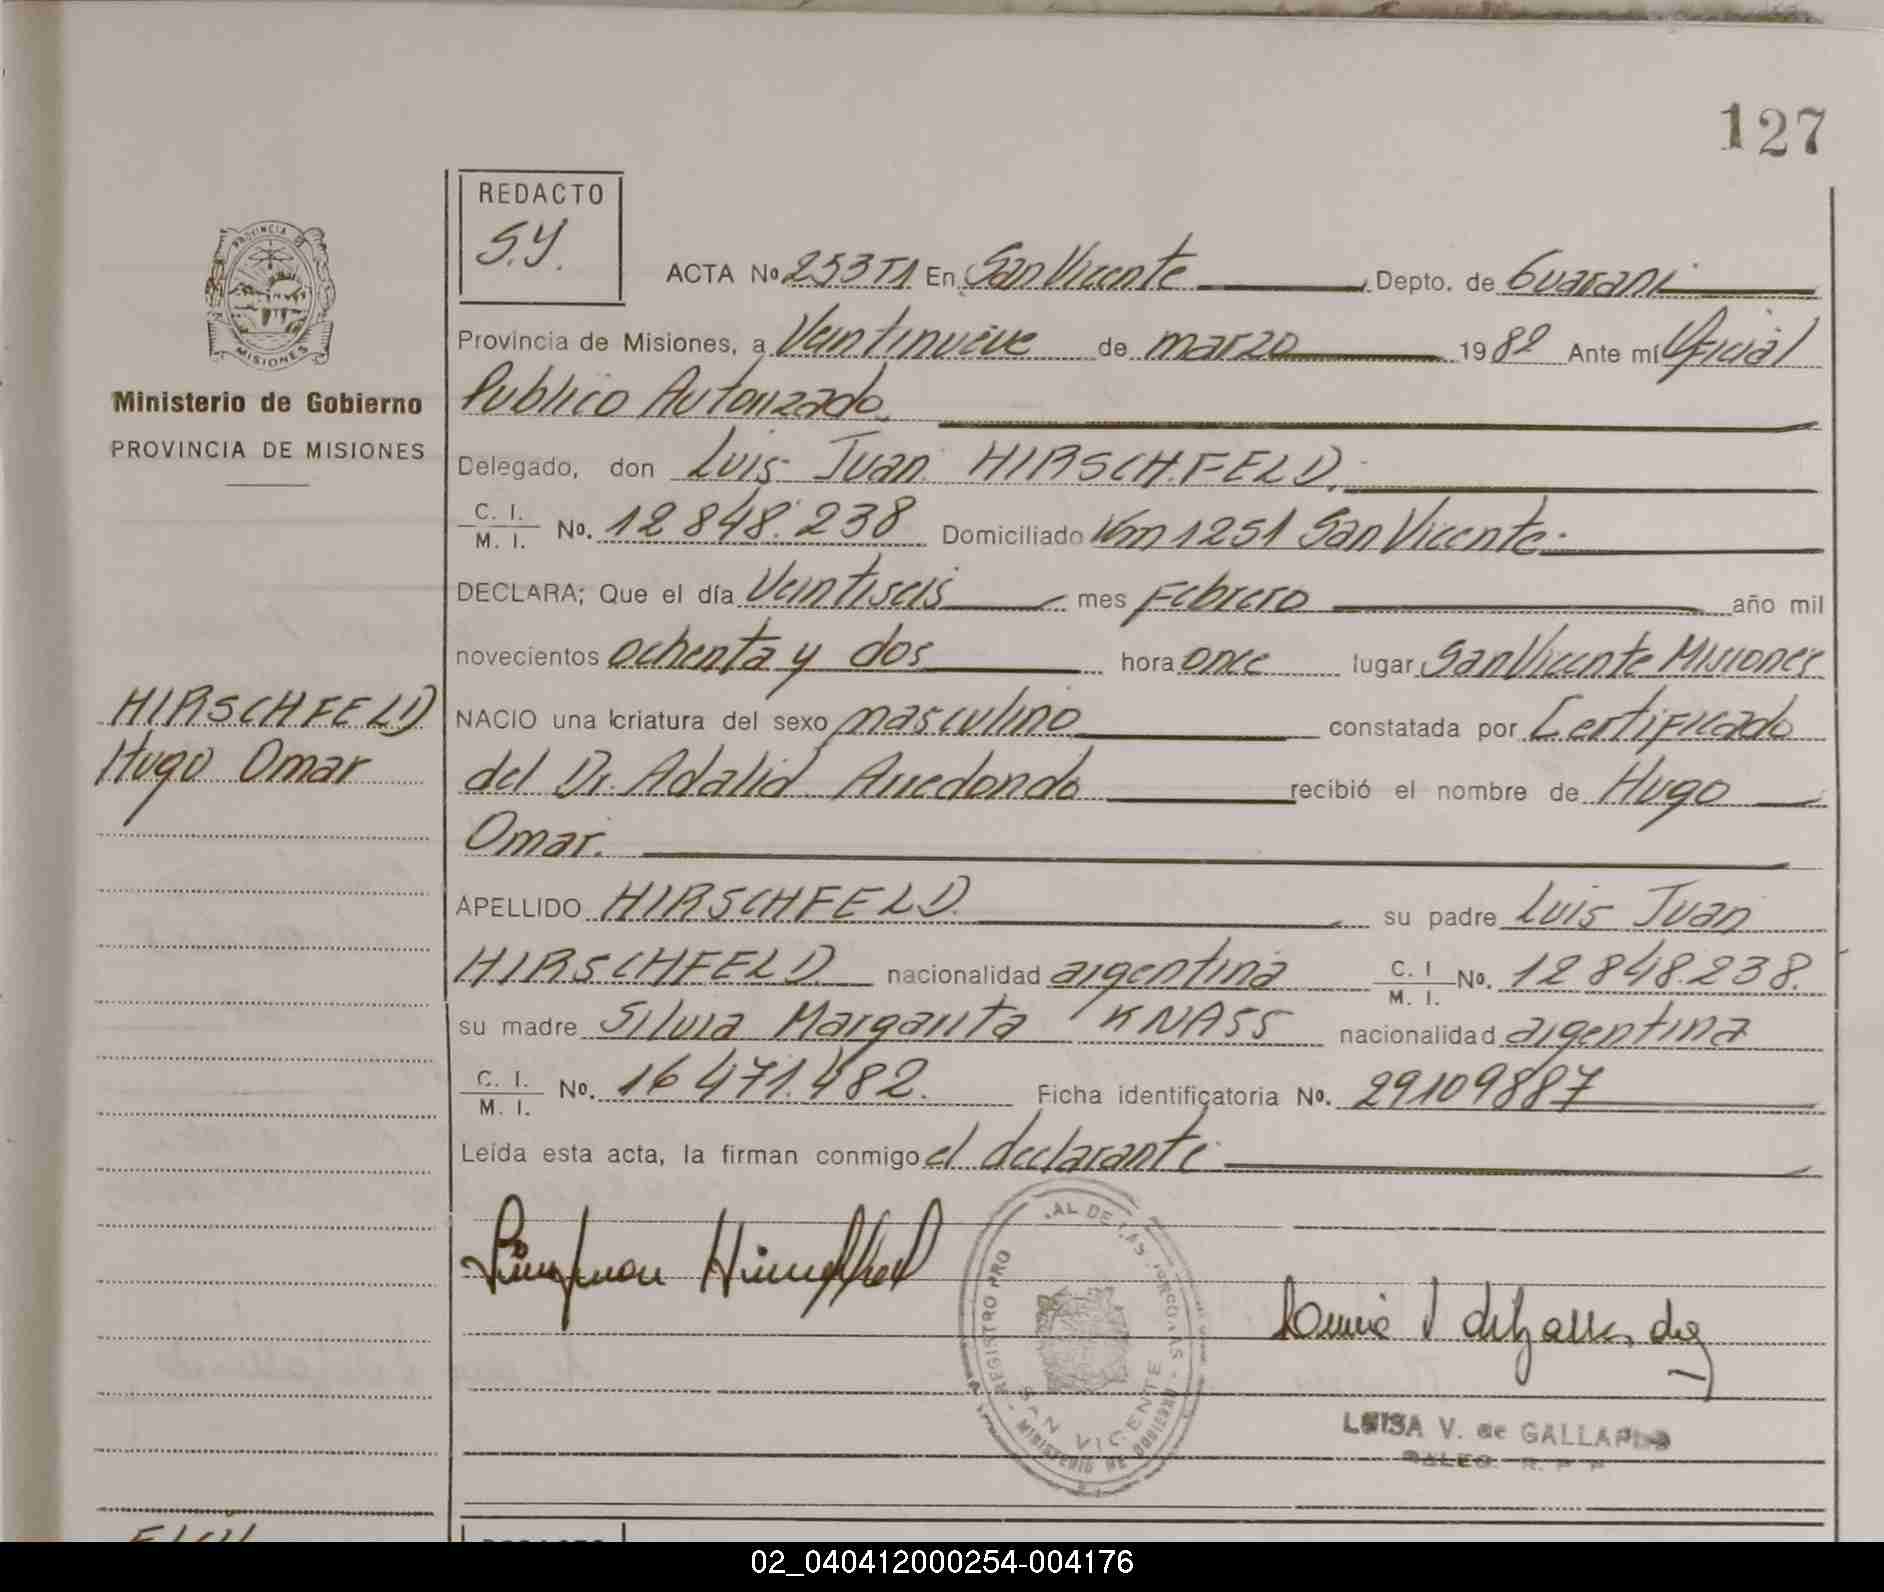 127
REDACTO
S.Y.
PROVINCIA D
MISIONES
Ministerio de Gobierno
PROVINCIA DE MISIONES
HIRSCHFELD
Hugo Omar
ACTA No 253T1 En San Vicente Depto. de Guarani
Provincia de Misiones, a Veintinueve de marzo 1982 Ante mí Oficial
Publico Autorizado
Delegado, don Luis Juan HIRSCHFELD.
C. I.
M. I. No. 12 848.238 Domiciliado Km 1251 San Vicente
DECLARA; Que el día Veintiseis mes Febrero año mil
novecientos ochenta y dos hora once lugar San Vicente Misiones
NACIO una criatura del sexo masculino constatada por Certificado
del Dr. Adalid Arredondo recibió el nombre de Hugo
Omar.
APELLIDO HIRSCHFELD. su padre Luis Juan
HIRSCHFELD nacionalidad argentina C. I
M. I. No. 12 848.238.
su madre Silvia Margarita KNASS nacionalidad argentina
C. I.
M. I. No. 16 471.482. Ficha identificatoria No. 29109887
Leída esta acta, la firman conmigo el declarante
REGISTRO PRO AL DE LAS PERSONAS
SAN VICENTE
MINISTERIO DE GOBIERNO
LUISA V. de GALLARDO
02_040412000254-004176